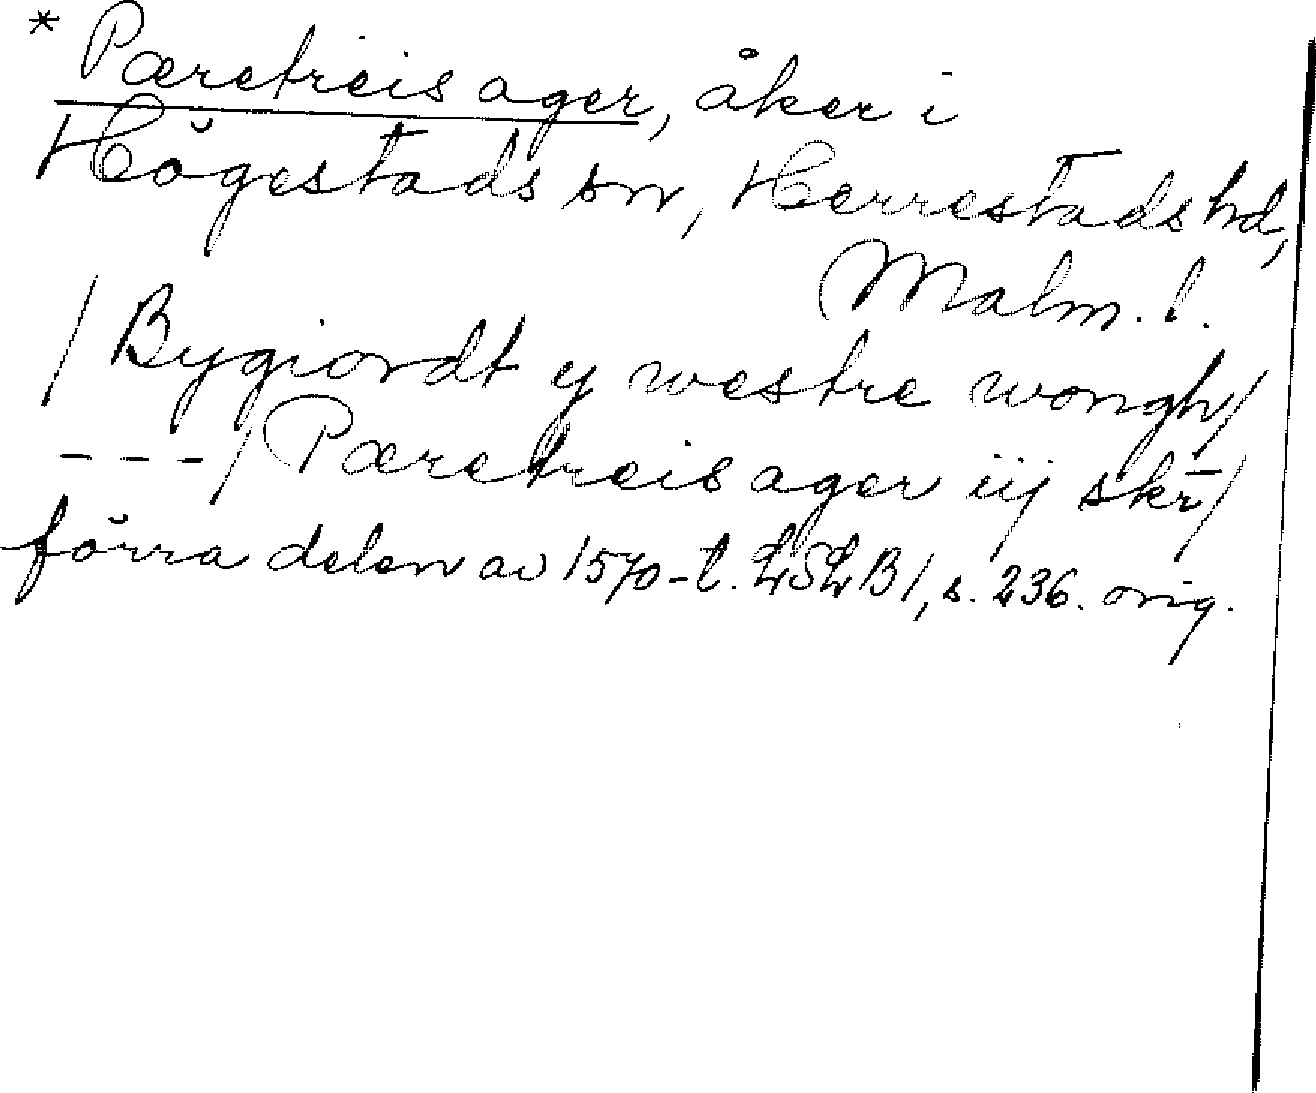 * Pæretreis ager, åker i
Högestads sn, Herrestads hd,
Malm. l.
/ Bygiordt y westre wongh/
---/ Pæretreis ager iij skr̄/
förra delen av 1570-t. LSLB1, s. 236. orig.